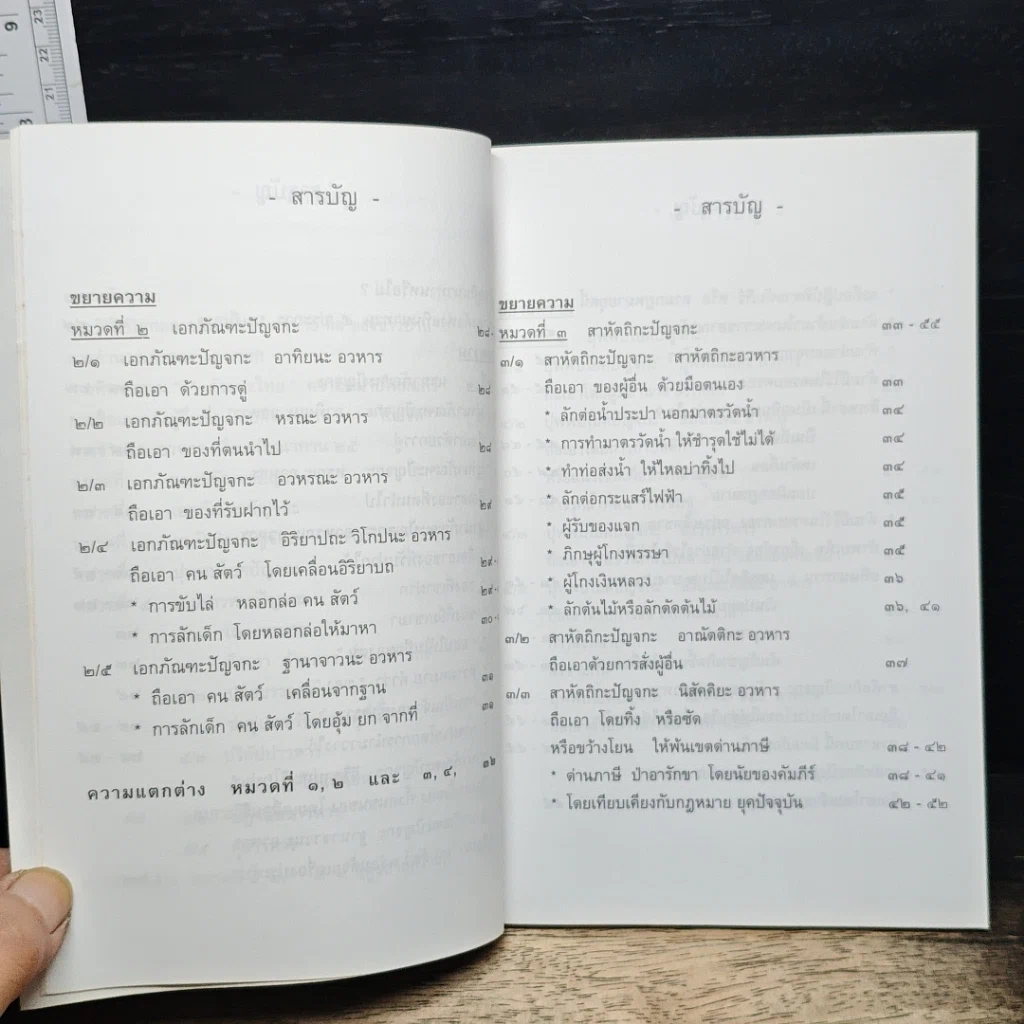 - สารบัญ -
ขยายความ
หมวดที่ ๒ เอกภัณฑะปัญจกะ ๒๘-
๒/๑ เอกภัณฑะปัญจกะ อาทิยนะ อวหาร
ถือเอา ด้วยการตู่ ๒๘
๒/๒ เอกภัณฑะปัญจกะ หรณะ อวหาร
ถือเอา ของที่ตนนำไป ๒๘
๒/๓ เอกภัณฑะปัญจกะ อวหรณะ อวหาร
ถือเอา ของที่รับฝากไว้ ๒๙
๒/๔ เอกภัณฑะปัญจกะ อิริยาปถะ วิโกปนะ อวหาร
ถือเอา คน สัตว์ โดยเคลื่อนอิริยาบถ ๒๙-
* การขับไล่ หลอกล่อ คน สัตว์ ๒๙-
* การลักเด็ก โดยหลอกล่อให้มาหา ๓๐-
๒/๕ เอกภัณฑะปัญจกะ ฐานาจาวนะ อวหาร
* ถือเอา คน สัตว์ เคลื่อนจากฐาน ๓๑
* การลักเด็ก คน สัตว์ โดยอุ้ม ยก จากที่ ๓๑
ความแตกต่าง หมวดที่ ๑, ๒ และ ๓, ๔, ๓๒
- สารบัญ -
ขยายความ
หมวดที่ ๓ สาหัตถิกะปัญจกะ ๓๓ - ๕๕
๓/๑ สาหัตถิกะปัญจกะ สาหัตถิกะอวหาร
ถือเอา ของผู้อื่น ด้วยมือตนเอง ๓๓
* ลักต่อน้ำประปา นอกมาตรวัดน้ำ ๓๔
* การทำมาตรวัดน้ำ ให้ชำรุดใช้ไม่ได้ ๓๔
* ทำท่อส่งน้ำ ให้ไหลบ่าทิ้งไป ๓๔
* ลักต่อกระแสร์ไฟฟ้า ๓๕
* ผู้รับของแจก ๓๕
* ภิกษุผู้โกงพรรษา ๓๕
* ผู้โกงเงินหลวง ๓๖
* ลักต้นไม้หรือลักตัดต้นไม้ ๓๖, ๔๑
๓/๒ สาหัตถิกะปัญจกะ อาณัตติกะ อวหาร
ถือเอาด้วยการสั่งผู้อื่น ๓๗
๓/๓ สาหัตถิกะปัญจกะ นิสัคคิยะ อวหาร
ถือเอา โดยทิ้ง หรือซัด
หรือขว้างโยน ให้พ้นเขตด่านภาษี ๓๘ - ๔๒
* ด่านภาษี ป่าอารักขา โดยนัยของคัมภีร์ ๓๘ - ๔๑
* โดยเทียบเคียงกับกฎหมาย ยุคปัจจุบัน ๔๒ - ๕๒
9
23
22
21